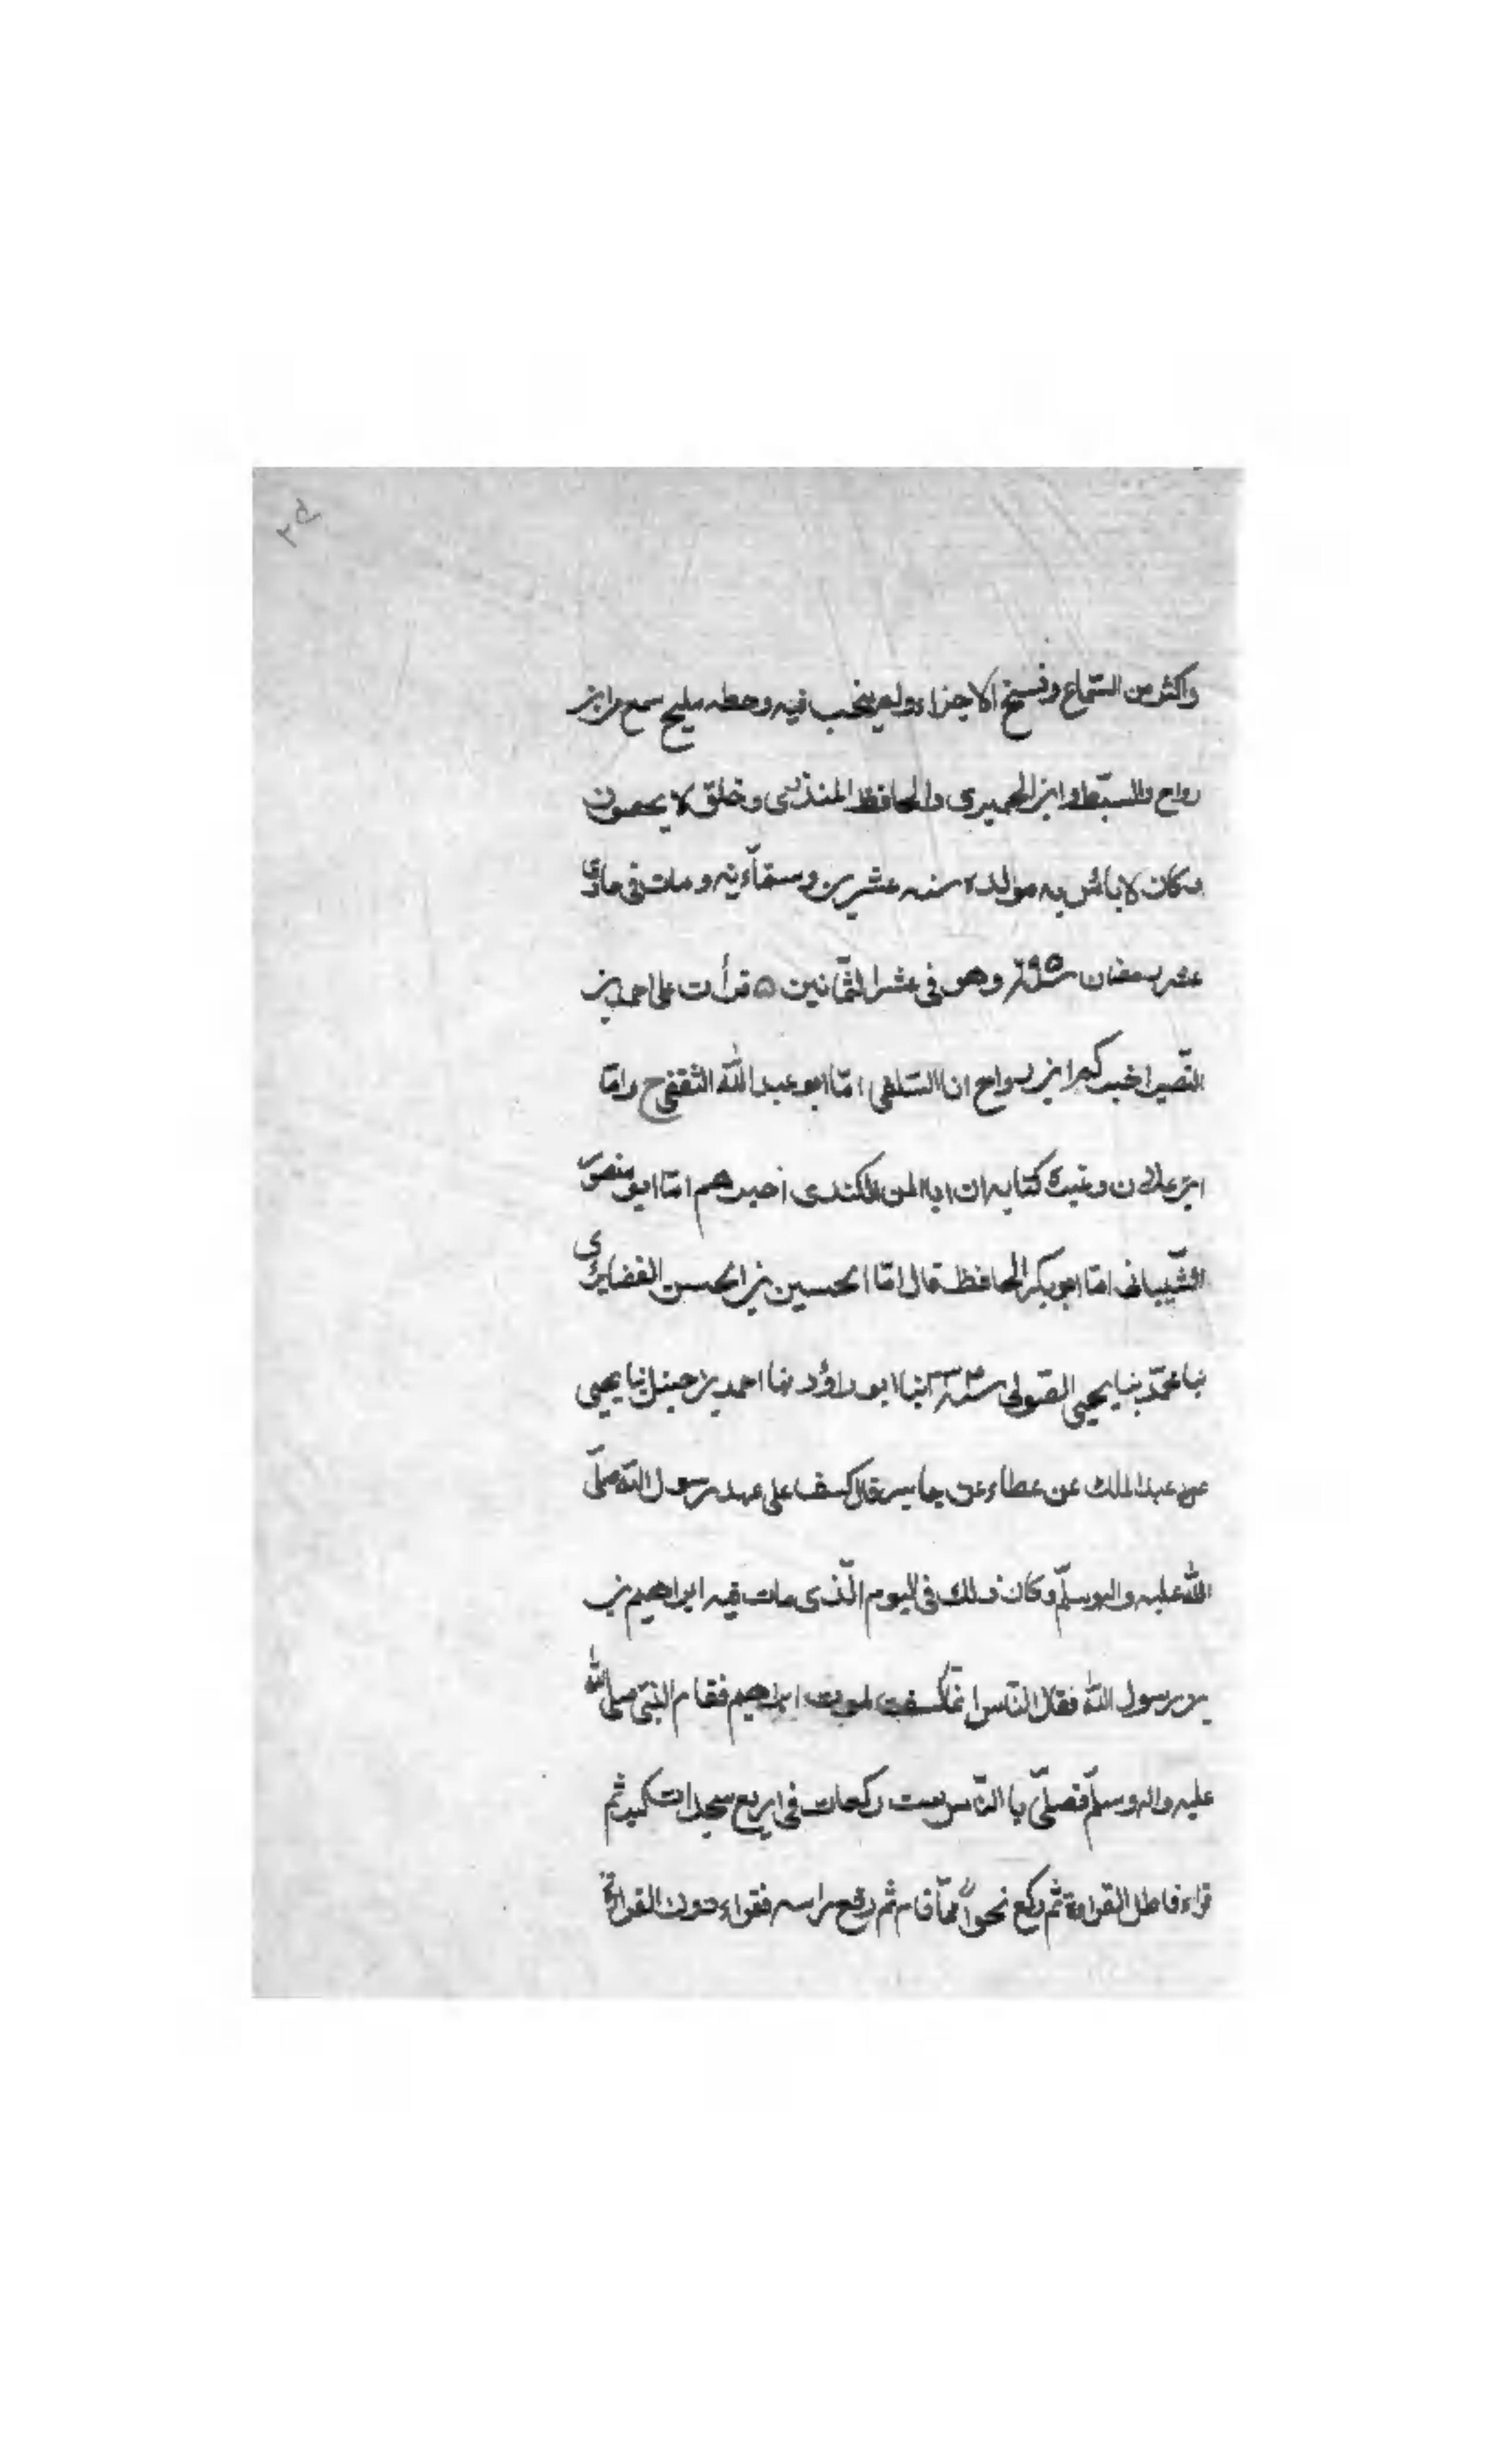 ۲۵
واكثر من السّماع ونسخ الاجزاء ولم ينجب فيه وخطه مليح سمع من ابن
رواج والسبط وابن الحميرى والحافظ المنذرى وخلق لا يحصون
وكان لا باس به مولده سنه عشرين وستمآئيه ومات فى حادى
عشر رمضان سنه ٦٩٥ وهو فى عشر الثّمانين ۵ قرأت على احمد بن
النّصير اخبركم ابن رواج انا السّلفى انّا ابو عبد اللّه الثقفى ح وانّا
ابن علان وغيره كتابه ان ابا اليمن الكندى اخبرهم انّا ابو منصور
الشّيبانى انّا ابو بكر الحافظ قال انّا الحسين بن الحسن الغضايرى
نبا محمّد بن يحيى الصّولى سنه نبا ابو داؤد نبا احمد بن حنبل نبا يحيى
عن عبد الملك عن عطاء عن جابر قال كسف على عهد رسول اللّه صلّى
اللّه عليه واله وسلّم وكان ذلك فى اليوم الّذى مات فيه ابراهيم بن
رسول اللّه فقال النّاس انّما كسفت لموت ابراهيم فقام النّبى صلى اللّه
عليه واله وسلّم فصلّى با النّاس ست ركعات فى اربع سجدات كبر ثم
قراء فاطل القراءة ثم ركع نحواً ممّا قام ثم رفع راسه فقراء دون القراءة